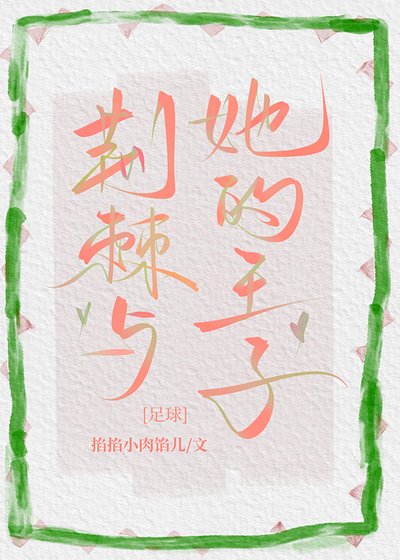 荆棘与
她的王子
[足球]
掐掐小肉馅儿/文